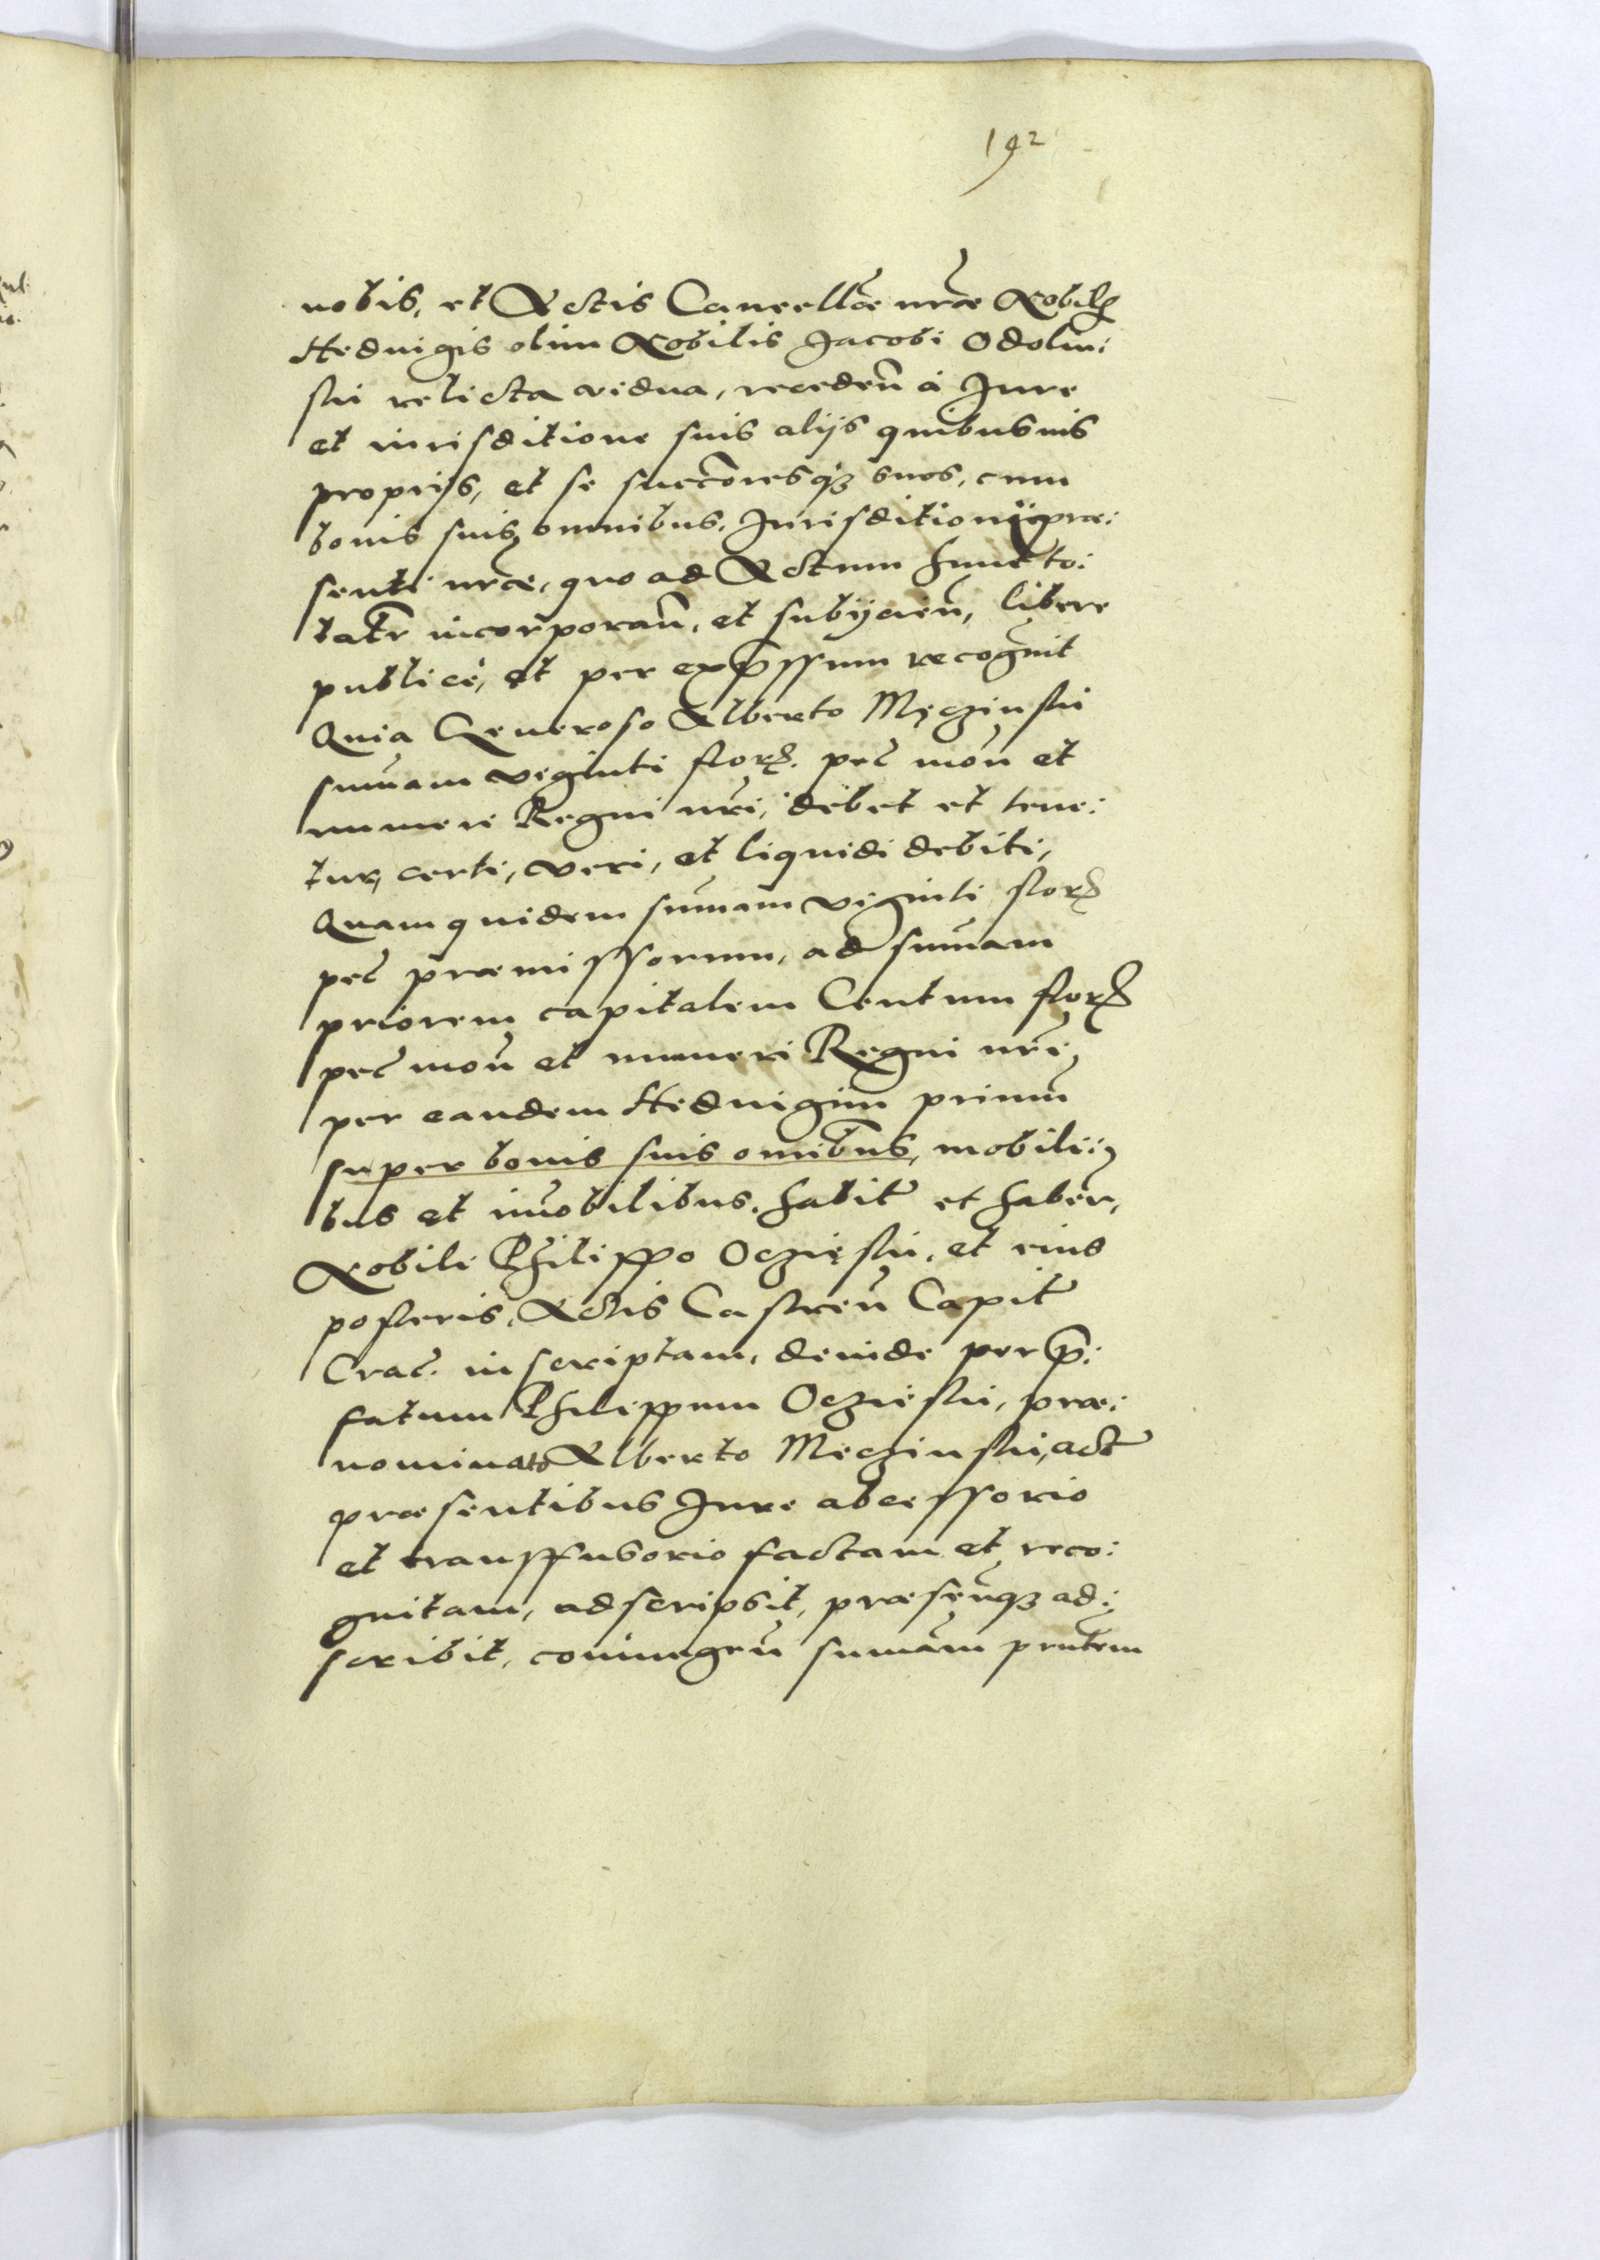 192
nobis, et Actis Cancellae nrae Nobil
Heduigis olim Nobilis Jacobi Odolin:
ski relicta vidua, receden à Jure
et iurisditione suis aliis quibusuis
proprijs, et se succoresq; suos, cum
bonis suis omnibus, Jurisditioni prae:
senti nrae, quo ad Actum hunc to:
batr incorporan, et subijcien, libere
publicè, et per expssum recognuit
Quia Generoso Alberto Męczinski
sumam viginti flor. pec mon et
numeri Regni nri, debet et tene:
tur, certi, veri, et liquidi debiti,
Quam quidem sumam viginti flor
pec praemissorum, ad sumam
priorem capitalem Centum flor
pec mon et numeri Regni nri,
per eandem Heduigim primu
super bonis suis omibus, mobili:
bus et imobilibus, habit et haben,
Nobili Philippo Oczięski, et eius
posteris, Actis Castren Capit
Crac. inscriptam, deinde per p:
fatum Philippum Oczieski, prae:
nominato Alberto Meczinski, act
praesentibus Jure abcessorio
et transfusorio factam et reco:
gnitam, adscripsit, praesenq; ad:
scribit, coniungen sumam pntem